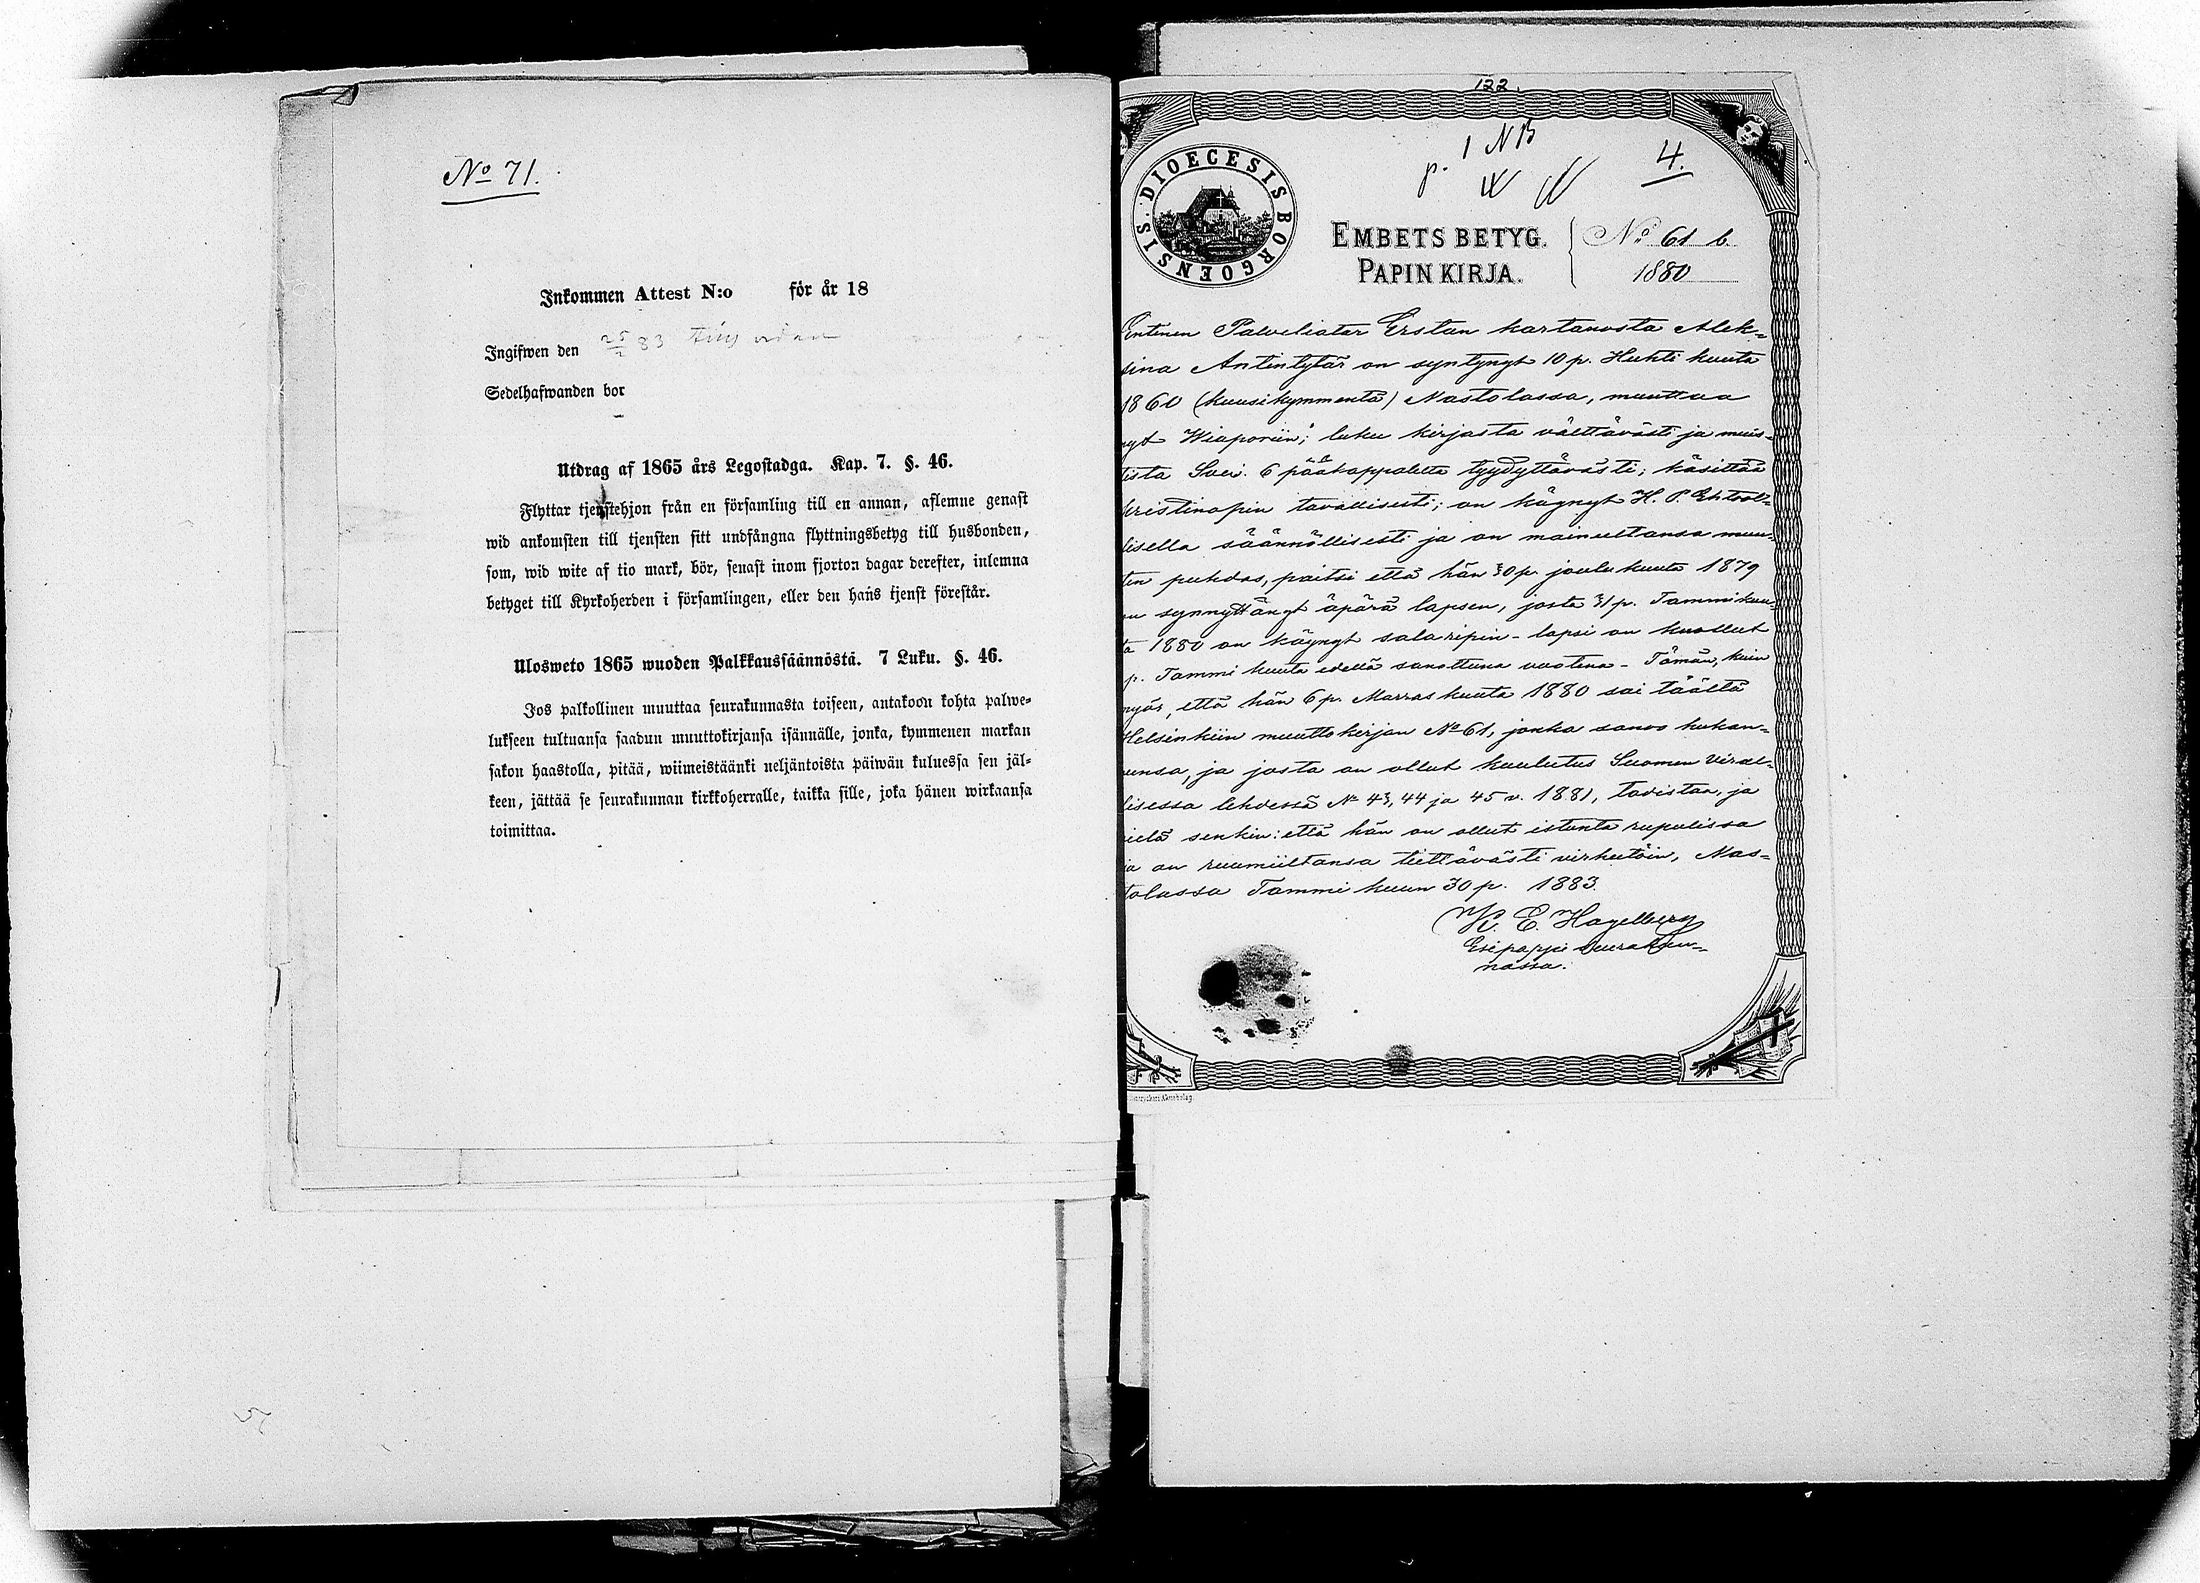 No 71.
Inkommen Attest N:o för år 18
Ingifwen den 25/2 83
Sedelhafwanden bor
Utdrag af 1865 års Legostadga. Kap. 7. §. 46.
Flyttar tjenstehjon från en församling till en annan, aflemne genast
wid ankomsten till tjensten sitt undfångna flyttningsbetyg till husbonden,
som, wid wite af tio mark, bör, senast inom fjorton dagar derefter, inlemna
betyget till Kyrkoherden i församlingen, eller den hans tjenst förestår.
Ulosweto 1865 wuoden Palkkaussäännöstä. 7 Luku. §. 46.
Jos palkollinen muuttaa seurakunnasta toiseen, antakoon kohta palwe-
lukseen tultuansa saadun muuttokirjansa isännälle, jonka, kymmenen markan
sakon haastolla, pitää, wiimeistäänki neljäntoista päiwän kuluessa sen jäl-
keen, jättää se seurakunnan kirkkoherralle, taikka sille, joka hänen wirkaansa
toimittaa.
122.
1 NB
p.
4.
DIOECESIS BORGOENSIS.
EMBETS BETYG.
PAPIN KIRJA.
No: 61 b.
1880
Entinen Palveliatar Erstan kartanosta Alek-
sina Antintytär on syntynyt 10 p. Huhti kuuta
1860 (kuusikymmentä) Nastolassa, muuttaa
nyt Wiaporiin; lukee kirjasta välttävästi ja muis-
tista 6 pääkappaletta tyydyttävästi; käsittää
kristinopin tavallisesti; on käynyt H. P. Ehtool-
lisella säännöllisesti ja on maineeltansa muu-
ten puhdas, paitsi että hän 30 p. joulukuuta 1879
on synnyttänyt äpärä lapsen, josta 31 p. Tammikuu-
ta 1880 on käynyt salaripin - lapsi on kuollut
p. Tammi kuuta edellä sanottuna vuotena - Tämän, kuin
myös, että hän 6 p. Marraskuuta 1880 sai täältä
Helsinkiin muuttokirjan No 61, jonka sanoo hukan-
neensa, ja josta on ollut kuulutus Suomen Viral-
lisessa lehdessä No 43, 44 ja 45 v. 1881, todistan, ja
vielä senkin: että hän on ollut istutetta rupulissa
ja on ruumiiltansa tiettävästi virheetöin, Nas-
tolassa Tammi kuun 30 p. 1883.
K. E. Hagelberg
Esipappi seurakun-
nassa.